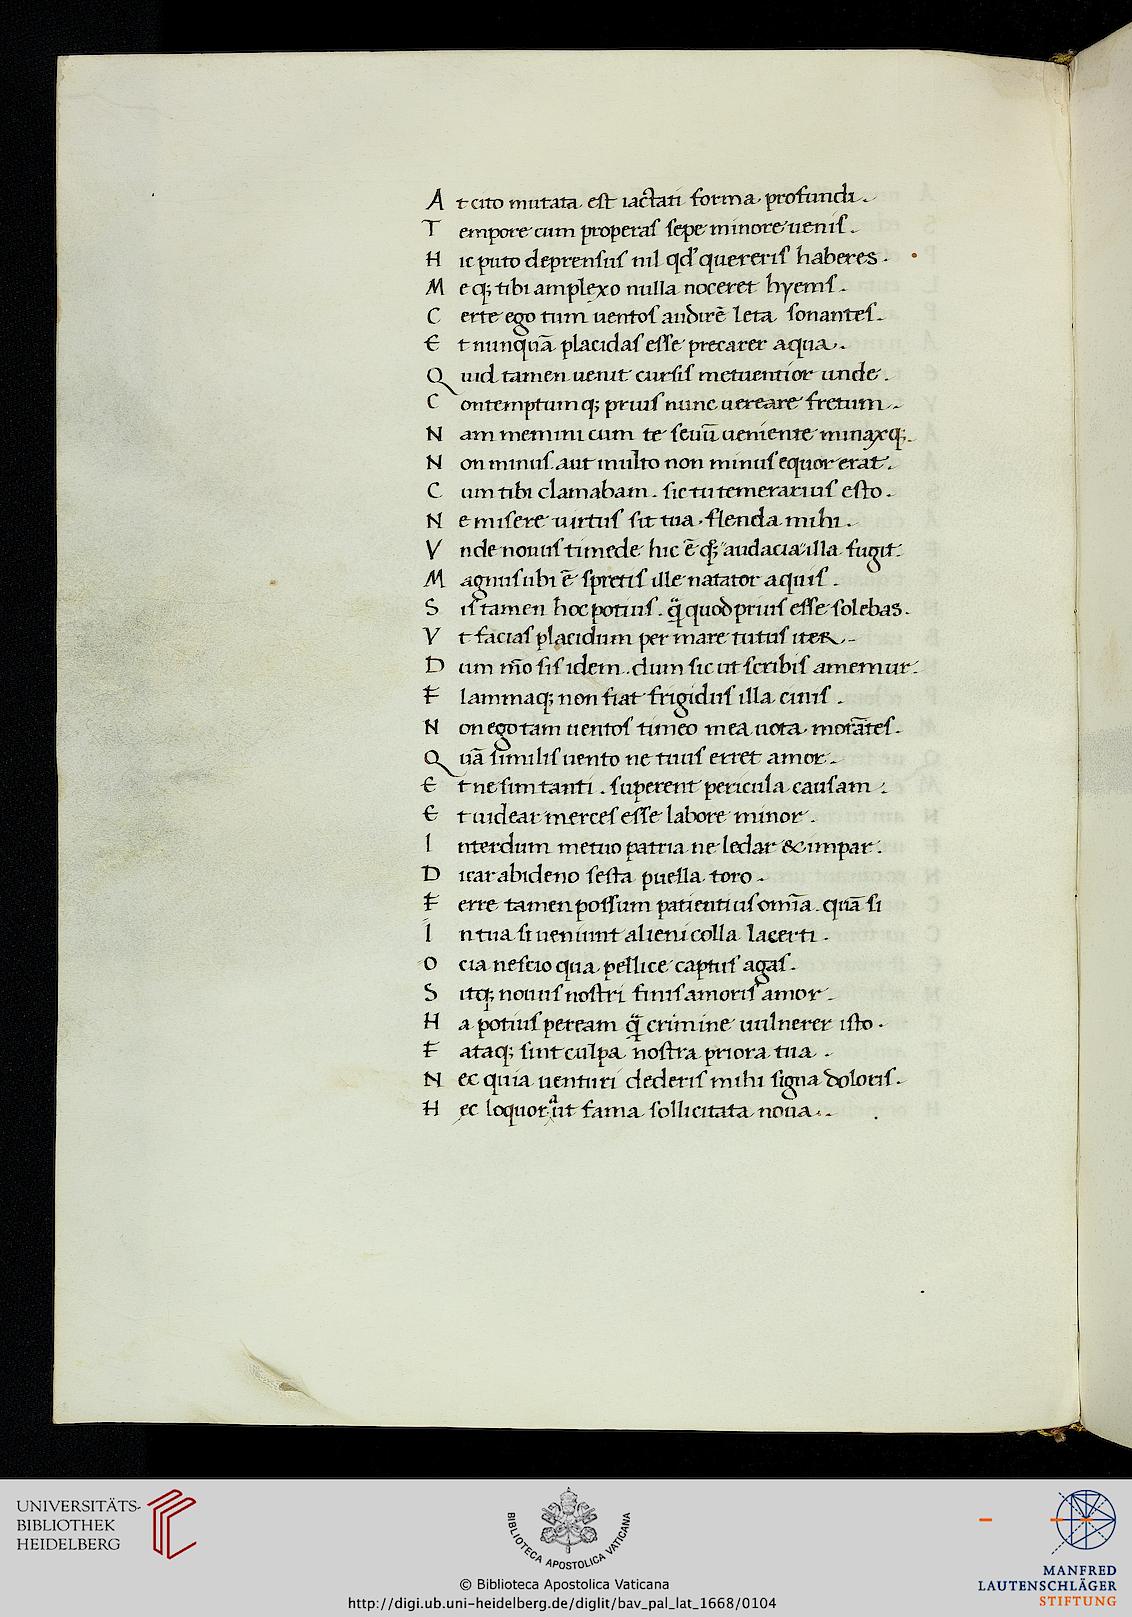 A t cito mutata est iactati forma profundi.
T empore cum properas sepe minore uenis.
H ic puto deprensus nil qd' quereris haberes.
M e q; tibi amplexo nulla noceret hyems.
C erte ego tum uentos audirē leta sonantes.
E t nunquā placidas esse precarer aqua.
Q uid tamen uenit cursis metuentior unde.
C ontemptumq; prius nunc uereare fretum.
N am memini cum te seuū ueniente minaxq;.
N on minus aut multo non minus equor erat.
C um tibi clamabam. sic tu temerarius esto.
N e misere uirtus sit tua flenda mihi.
V nde nouus timede hic ē q; audacia illa fugit.
M agnus ubi ē spretis ille natator aquis.
S is tamen hoc potius. q̄ quod prius esse solebas.
V t facias placidum per mare tutus iter.
D um mō sis idem. dum sic ut scribis amemur.
F lammaq; non fiat frigidus illa cinis.
N on ego tam uentos timeo mea uota morātes.
Q uā similis uento ne tuus erret amor.
E t ne sim tanti. superent pericula causam.
E t uidear merces esse labore minor.
I nterdum metuo patria ne ledar & impar.
D icar abideno sesta puella toro.
F erre tamen possum patientius omīa quā si
I n tua si ueniunt alieni colla lacerti.
O cia nescio qua pellice captus agas.
S itq; nouus nostri finis amoris amor.
H a potius peream q̄ crimine uulnerer isto.
F ataq; sint culpa nostra priora tua.
N ec quia uenturi dederis mihi signa doloris.
H ec loquor aut fama sollicitata noua.
UNIVERSITÄTS-
BIBLIOTHEK
HEIDELBERG
BIBLIOTECA APOSTOLICA VATICANA
© Biblioteca Apostolica Vaticana
http://digi.ub.uni-heidelberg.de/diglit/bav_pal_lat_1668/0104
MANFRED
LAUTENSCHLÄGER
STIFTUNG